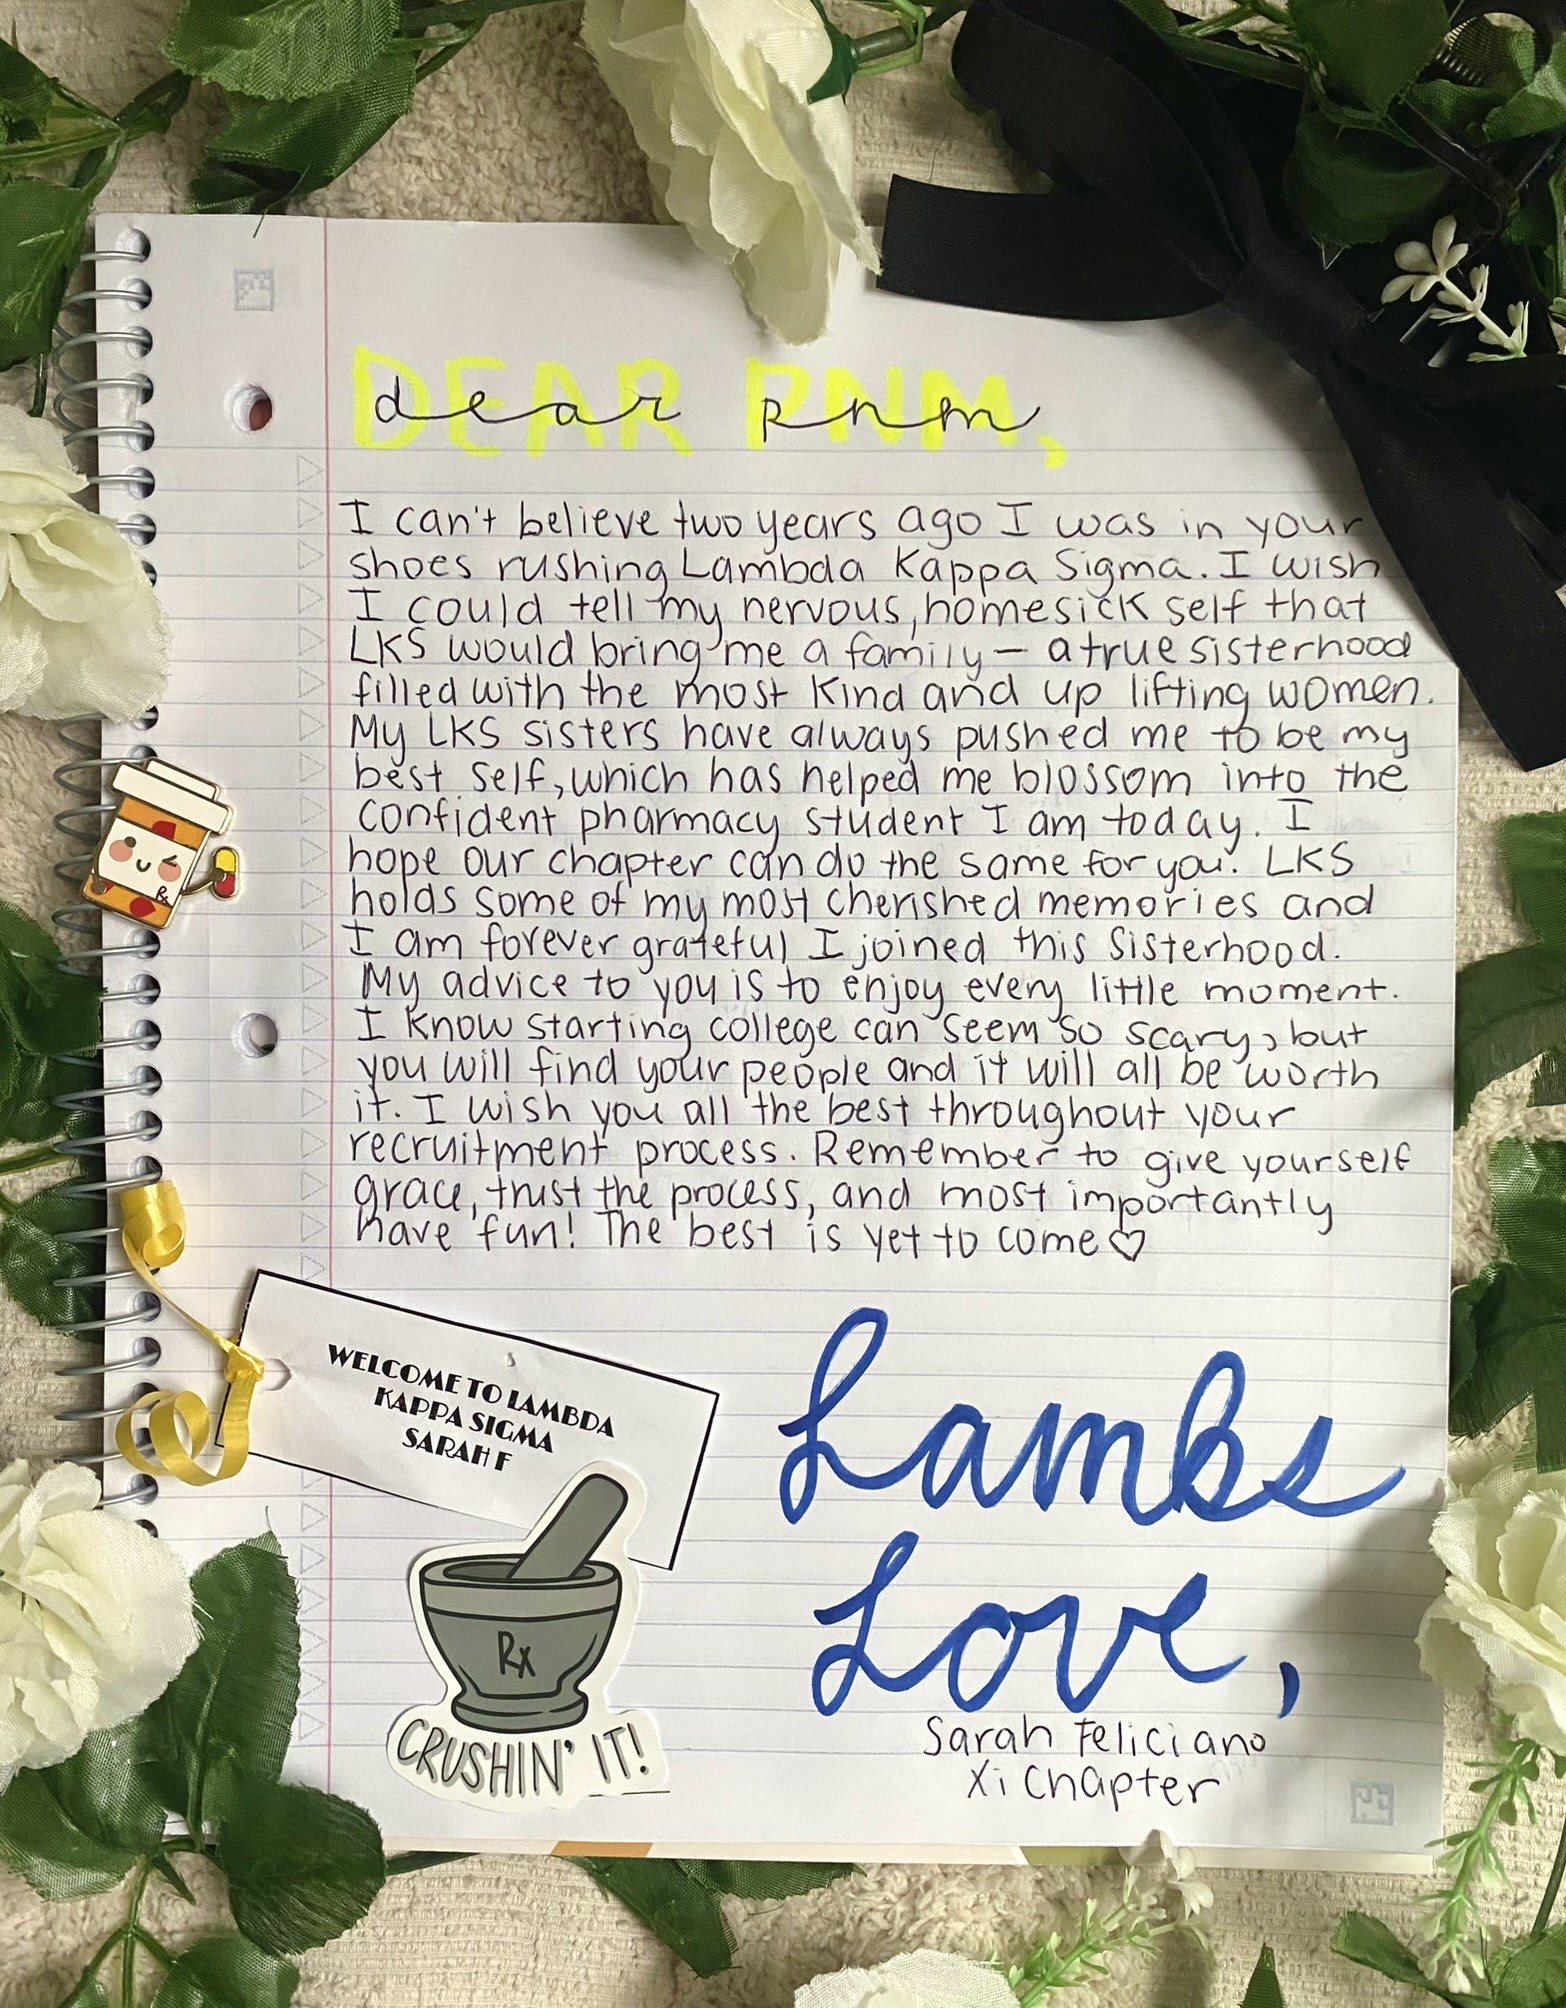 DEAR PNM,
dear pnm
I can't believe two years ago I was in your
shoes rushing Lambda Kappa Sigma. I wish
I could tell my nervous, homesick self that
LKS would bring me a family — a true sisterhood
filled with the most kind and up lifting women.
My LKS sisters have always pushed me to be my
best self, which has helped me blossom into the
confident pharmacy student I am today. I
hope our chapter can do the same for you. LKS
holds some of my most cherished memories and
I am forever grateful I joined this sisterhood.
My advice to you is to enjoy every little moment.
I know starting college can seem so scary, but
you will find your people and it will all be worth
it. I wish you all the best throughout your
recruitment process. Remember to give yourself
grace, trust the process, and most importantly
have fun! The best is yet to come ♡
WELCOME TO LAMBDA
KAPPA SIGMA
SARAH F
Rx
CRUSHIN' IT!
Lambs
Love,
Sarah Feliciano
Xi Chapter
Rx